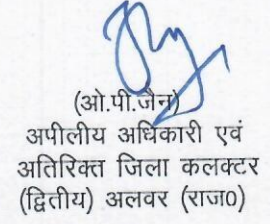 (ओ.पी.जैन)
अपीलीय अधिकारी एवं
अतिरिक्त जिला कलक्टर
(द्वितीय) अलवर (राज0)